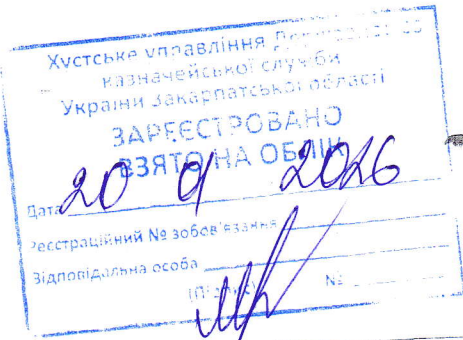 Хустське управління Державної
казначейської служби
України Закарпатської області
ЗАРЕЄСТРОВАНО
ВЗЯТО НА ОБЛІК
Дата 20 01 2026
Реєстраційний № зобов'язання
Відповідальна особа
(підпис) №